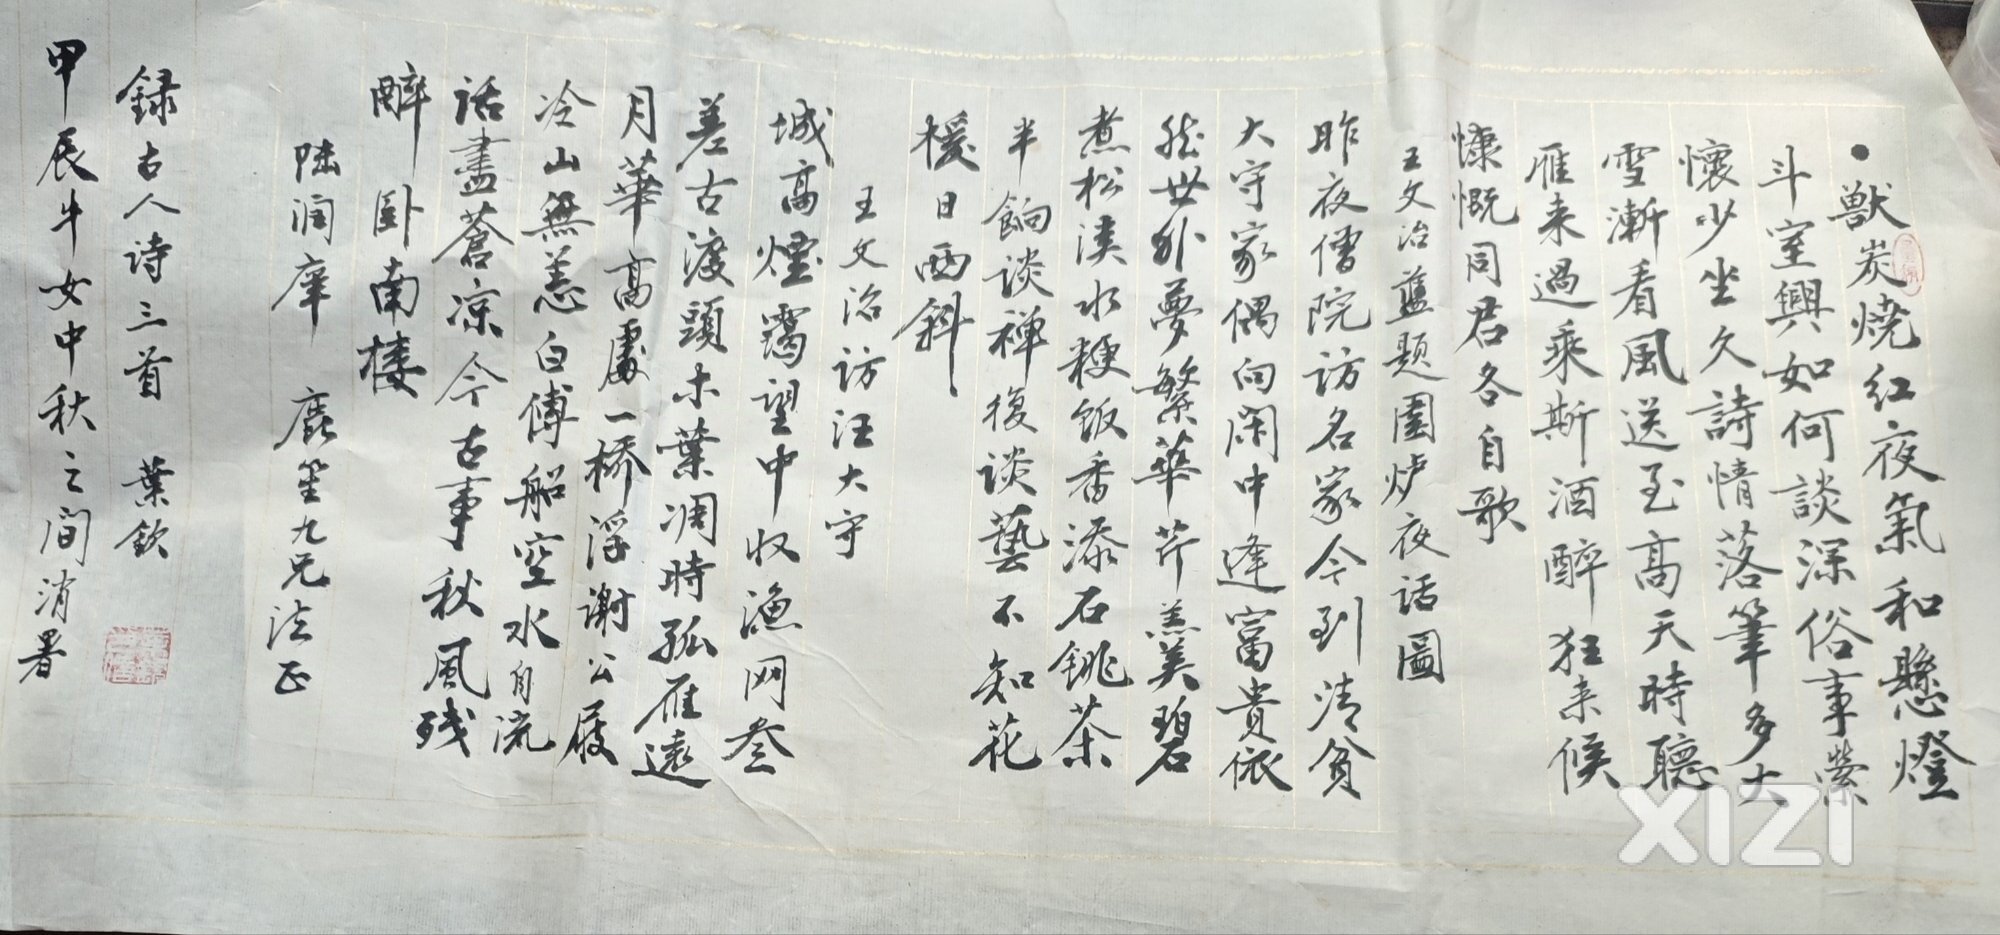 獸炭燒紅夜氣和懸燈
斗室興如何談深俗事縈
懷少坐久詩情落筆多大
雪漸看風送至高天時聽
雁来過乘斯酒醉狂来候
慷慨同君各自歌
王文治藍題圍炉夜話圖
昨夜僧院访名家今到清貧
大守家偶向闲中逢富貴依
然世外夢繁華芹羔美碧
煮松溪水粳飯香添石銚茶
半餉談禅復談藝不知花
援日西斜
王文治访汪大守
城高煙靄望中收漁网叁
差古渡頭木葉凋時孤雁遠
月華高處一橋浮謝公屐
冷山無恙白傅船空水自流
话盡蒼凉今古事秋風残
醉卧南楼
陆润庠 鹿笙九兄法正
録古人诗三首 葉欽
甲辰牛女中秋之间消暑
XIZI